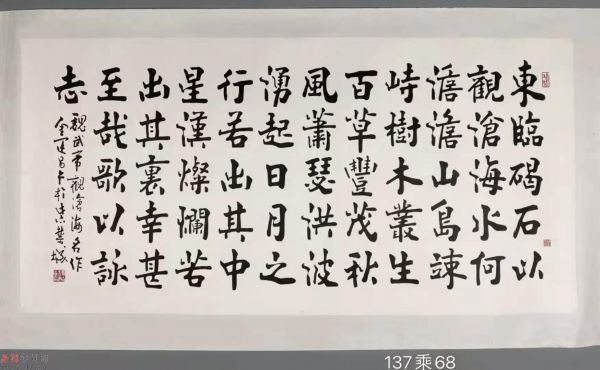 東臨碣石以
觀滄海水何
澹澹山島竦
峙樹木叢生
百草豐茂秋
風蕭瑟洪波
湧起日月之
行若出其中
星漢燦爛若
出其裏幸甚
至哉歌以詠
志
魏武帝觀滄海名作
金運昌
137乘68